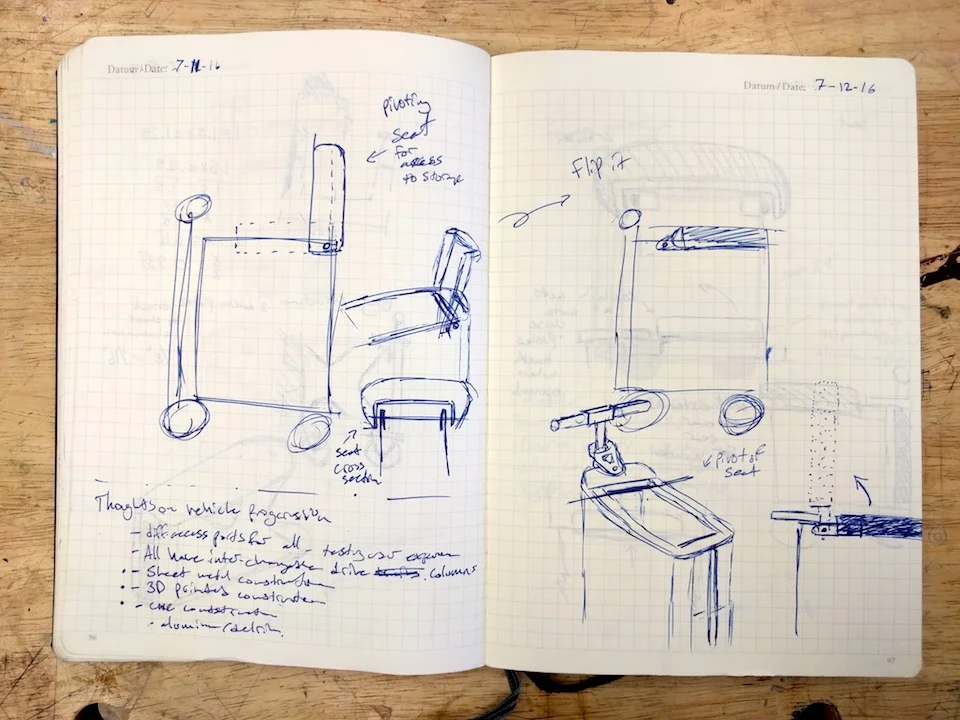 Datum/Date: 7-11-16
Pivoting
seat
for
access
to storage
seat
cross
section
Thoughts on vehicle progression
- diff access ports for all - testing user
- All have interchangable drive columns
- Sheet metal construction
- 3D printed construction
- CNC construction
96
Datum/Date: 7-12-16
Flip it
Pivot of
seat
97